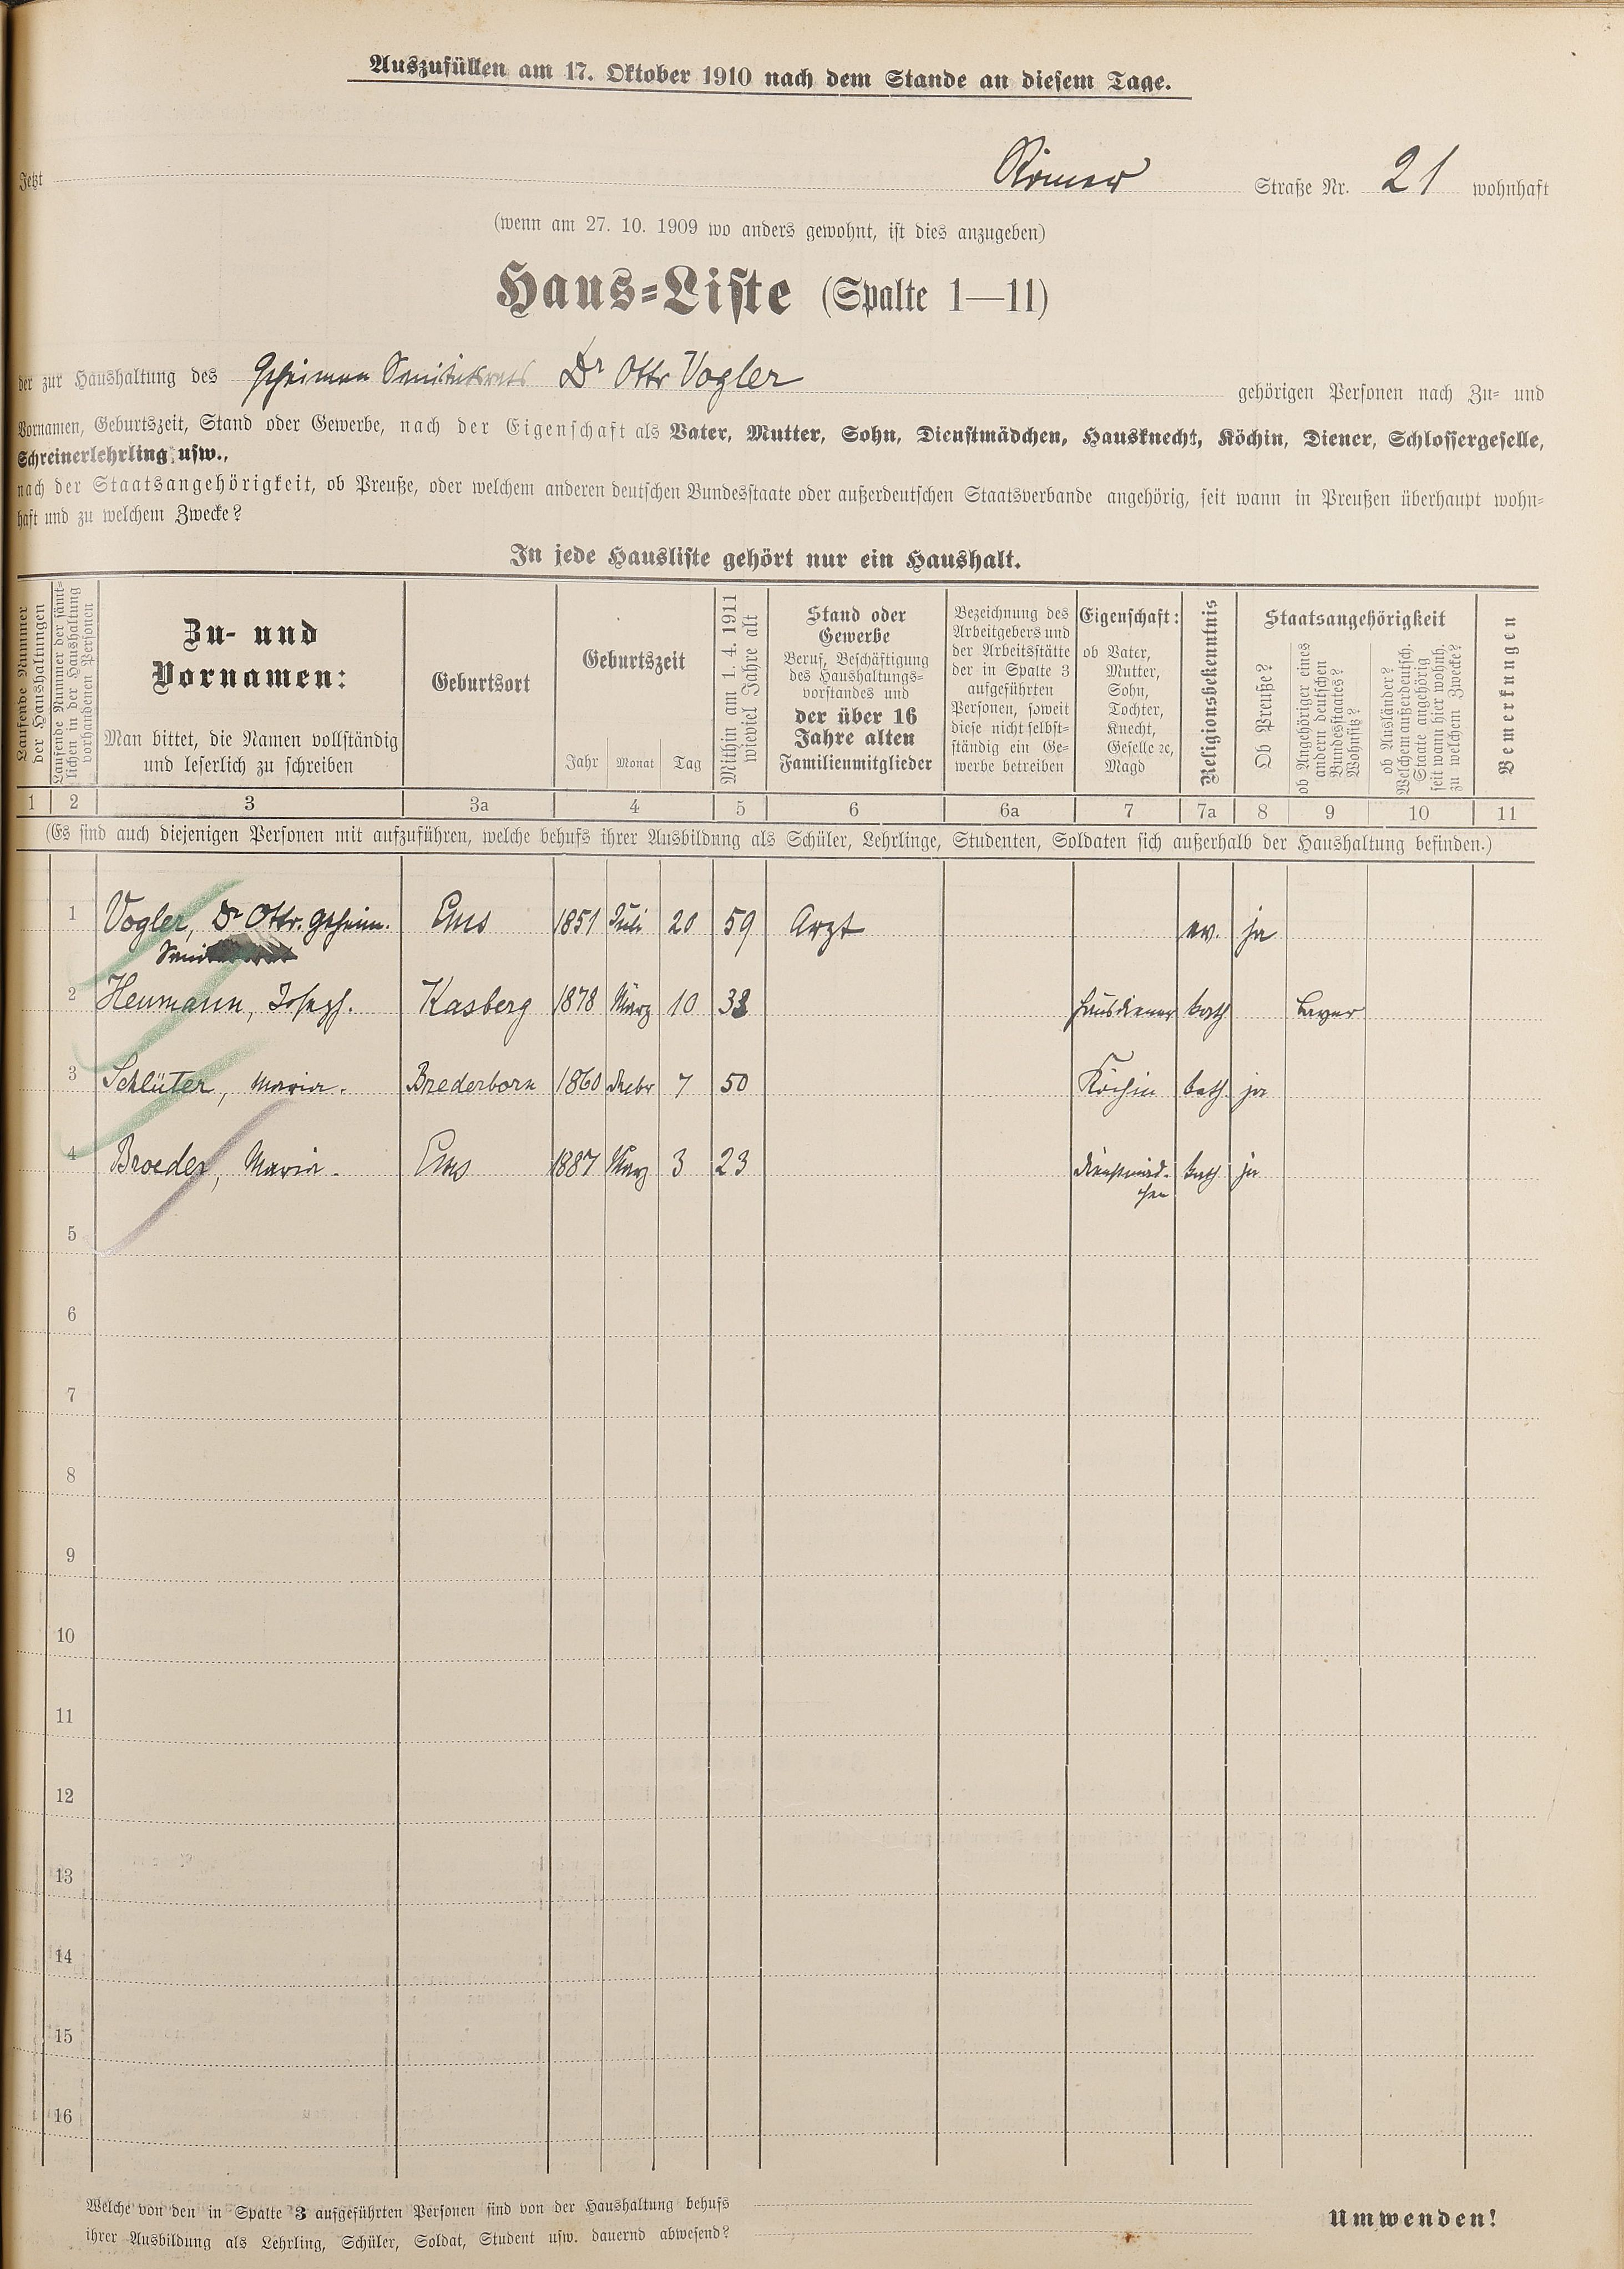 Auszufüllen am 17. Oktober 1910 nach dem Stande an diesem Tage.
Jetzt Römer Straße Nr. 21 wohnhaft
(wenn am 27. 10. 1909 wo anders gewohnt, ist dies anzugeben)
Haus-Liste (Spalte 1—11)
der zur Haushaltung des Geheimen Sanitätsrats Dr Otto Vogler gehörigen Personen nach Zu- und
Vornamen, Geburtszeit, Stand oder Gewerbe, nach der Eigenschaft als Vater, Mutter, Sohn, Dienstmädchen, Hausknecht, Köchin, Diener, Schlossergeselle,
Schreinerlehrling usw.,
nach der Staatsangehörigkeit, ob Preuße, oder welchem anderen deutschen Bundesstaate oder außerdeutschen Staatsverbande angehörig, seit wann in Preußen überhaupt wohn-
haft und zu welchem Zwecke?
In jede Hausliste gehört nur ein Haushalt.
Laufende Nummer
der Haushaltungen
Laufende Nummer der sämt-
lichen in der Haushaltung
vorhandenen Personen
Zu- und
Vornamen:
Man bittet, die Namen vollständig
und leserlich zu schreiben
Geburtsort
Geburtszeit
Jahr Monat Tag
Mithin am 1. 4. 1911
wieviel Jahre alt
Stand oder
Gewerbe
Beruf, Beschäftigung
des Haushaltungs-
vorstandes und
der über 16
Jahre alten
Familienmitglieder
Bezeichnung des
Arbeitgebers und
der Arbeitsstätte
der in Spalte 3
aufgeführten
Personen, soweit
diese nicht selbst-
ständig ein Ge-
werbe betreiben
Eigenschaft:
ob Vater,
Mutter,
Sohn,
Tochter,
Knecht,
Geselle ꝛc,
Magd
Religionsbekenntnis
Staatsangehörigkeit
Ob Preuße?
ob Angehöriger eines
andern deutschen
Bundesstaates?
Wohnsitz?
ob Ausländer?
Welchem außerdeutsch.
Staate angehörig
seit wann hier wohnh.
zu welchem Zwecke?
Bemerkungen
1 2 3 3a 4 5 6 6a 7 7a 8 9 10 11
(Es sind auch diejenigen Personen mit aufzuführen, welche behufs ihrer Ausbildung als Schüler, Lehrlinge, Studenten, Soldaten sich außerhalb der Haushaltung befinden.)
1 Vogler, Dr Otto. Geheim. Ems 1851 Juli 20 59 Arzt ev. ja
Sanitätsrat
2 Heumann, Joseph. Kasberg 1878 März 10 32 Hausdiener kath Bayer
3 Schlüter, Maria. Brederborn 1860 Dezbr 7 50 Köchin kath. ja
4 Broeder, Maria. Ems 1887 März 3 23 Dienstmäd- kath ja
chen
5
6
7
8
9
10
11
12
13
14
15
16
Welche von den in Spalte 3 aufgeführten Personen sind von der Haushaltung behufs
ihrer Ausbildung als Lehrling, Schüler, Soldat, Student usw. dauernd abwesend?
Umwenden!